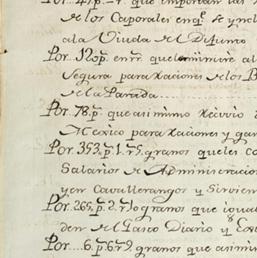 Por. 47 p.s 4 r. que importan las
de los Caporales en q.e se ynclu
a la Viuda de el Difunto
Por. 120 p.s en rr. que le ministre al
Segura para raciones de los B
de la Parada
Por. 78 p.s que asimismo recivio
Mexico para raciones y gan
Por. 353 p.s 1 r. 5 granos que les co
Salarios de Administracion
y en Cavallerangos y Sirvien
Por. 265 p.s 2 r. 10 granos que igua
den el Gasto Diario y
Por.... 6 p.s 6 r. 2 granos que asimi